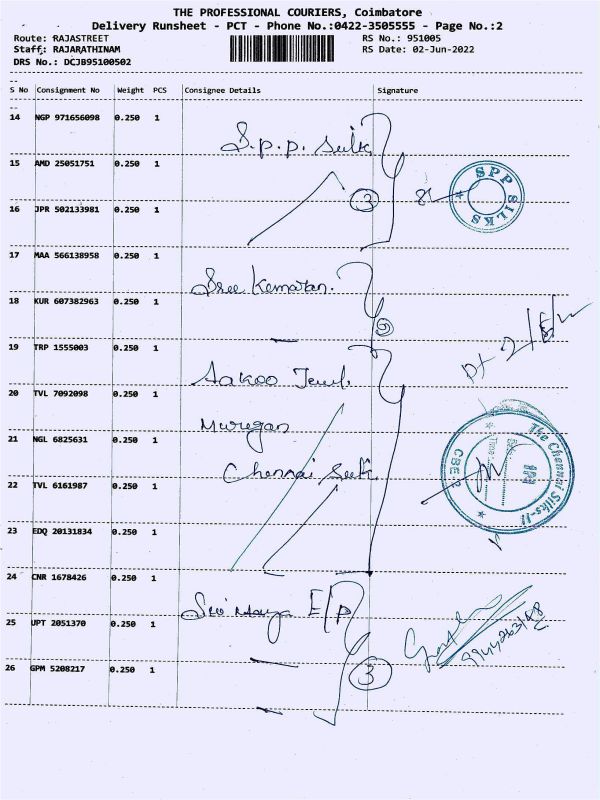 THE PROFESSIONAL COURIERS, Coimbatore
Delivery Runsheet - PCT - Phone No.:0422-3505555 - Page No.:2
Route: RAJASTREET RS No.: 951005
Staff: RAJARATHINAM RS Date: 02-Jun-2022
DRS No.: DCJB95100502
S No Consignment No Weight PCS Consignee Details Signature
14 NGP 971656098 0.250 1
S.P.P. Silk
15 AMD 25051751 0.250 1
SPP SILKS
3
16 JPR 502133981 0.250 1
17 MAA 566138958 0.250 1
Sree Kematan.
18 KUR 607382963 0.250 1
2
19 TRP 1555003 0.250 1
Aakoo
20 TVL 7092098 0.250 1
Murugan
21 NGL 6825631 0.250 1
The Chennai Silks-II
CBE
Chennai Silk
22 TVL 6161987 0.250 1
23 EDQ 20131834 0.250 1
24 CNR 1678426 0.250 1
E/P
25 UPT 2051370 0.250 1
26 GPM 5208217 0.250 1
3